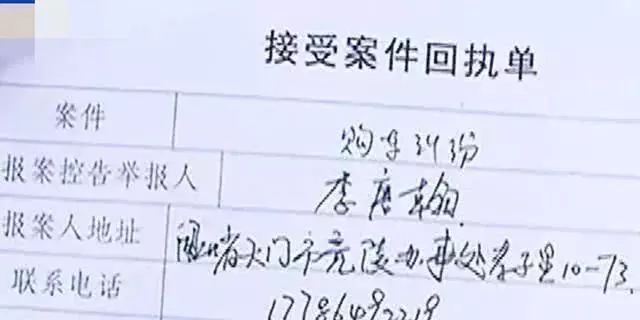 接受案件回执单
案件 购车纠纷
报案控告举报人 李唐翰
报案人地址 湖北省天门市竟陵办事处孝子里10-73.
联系电话 17786492219